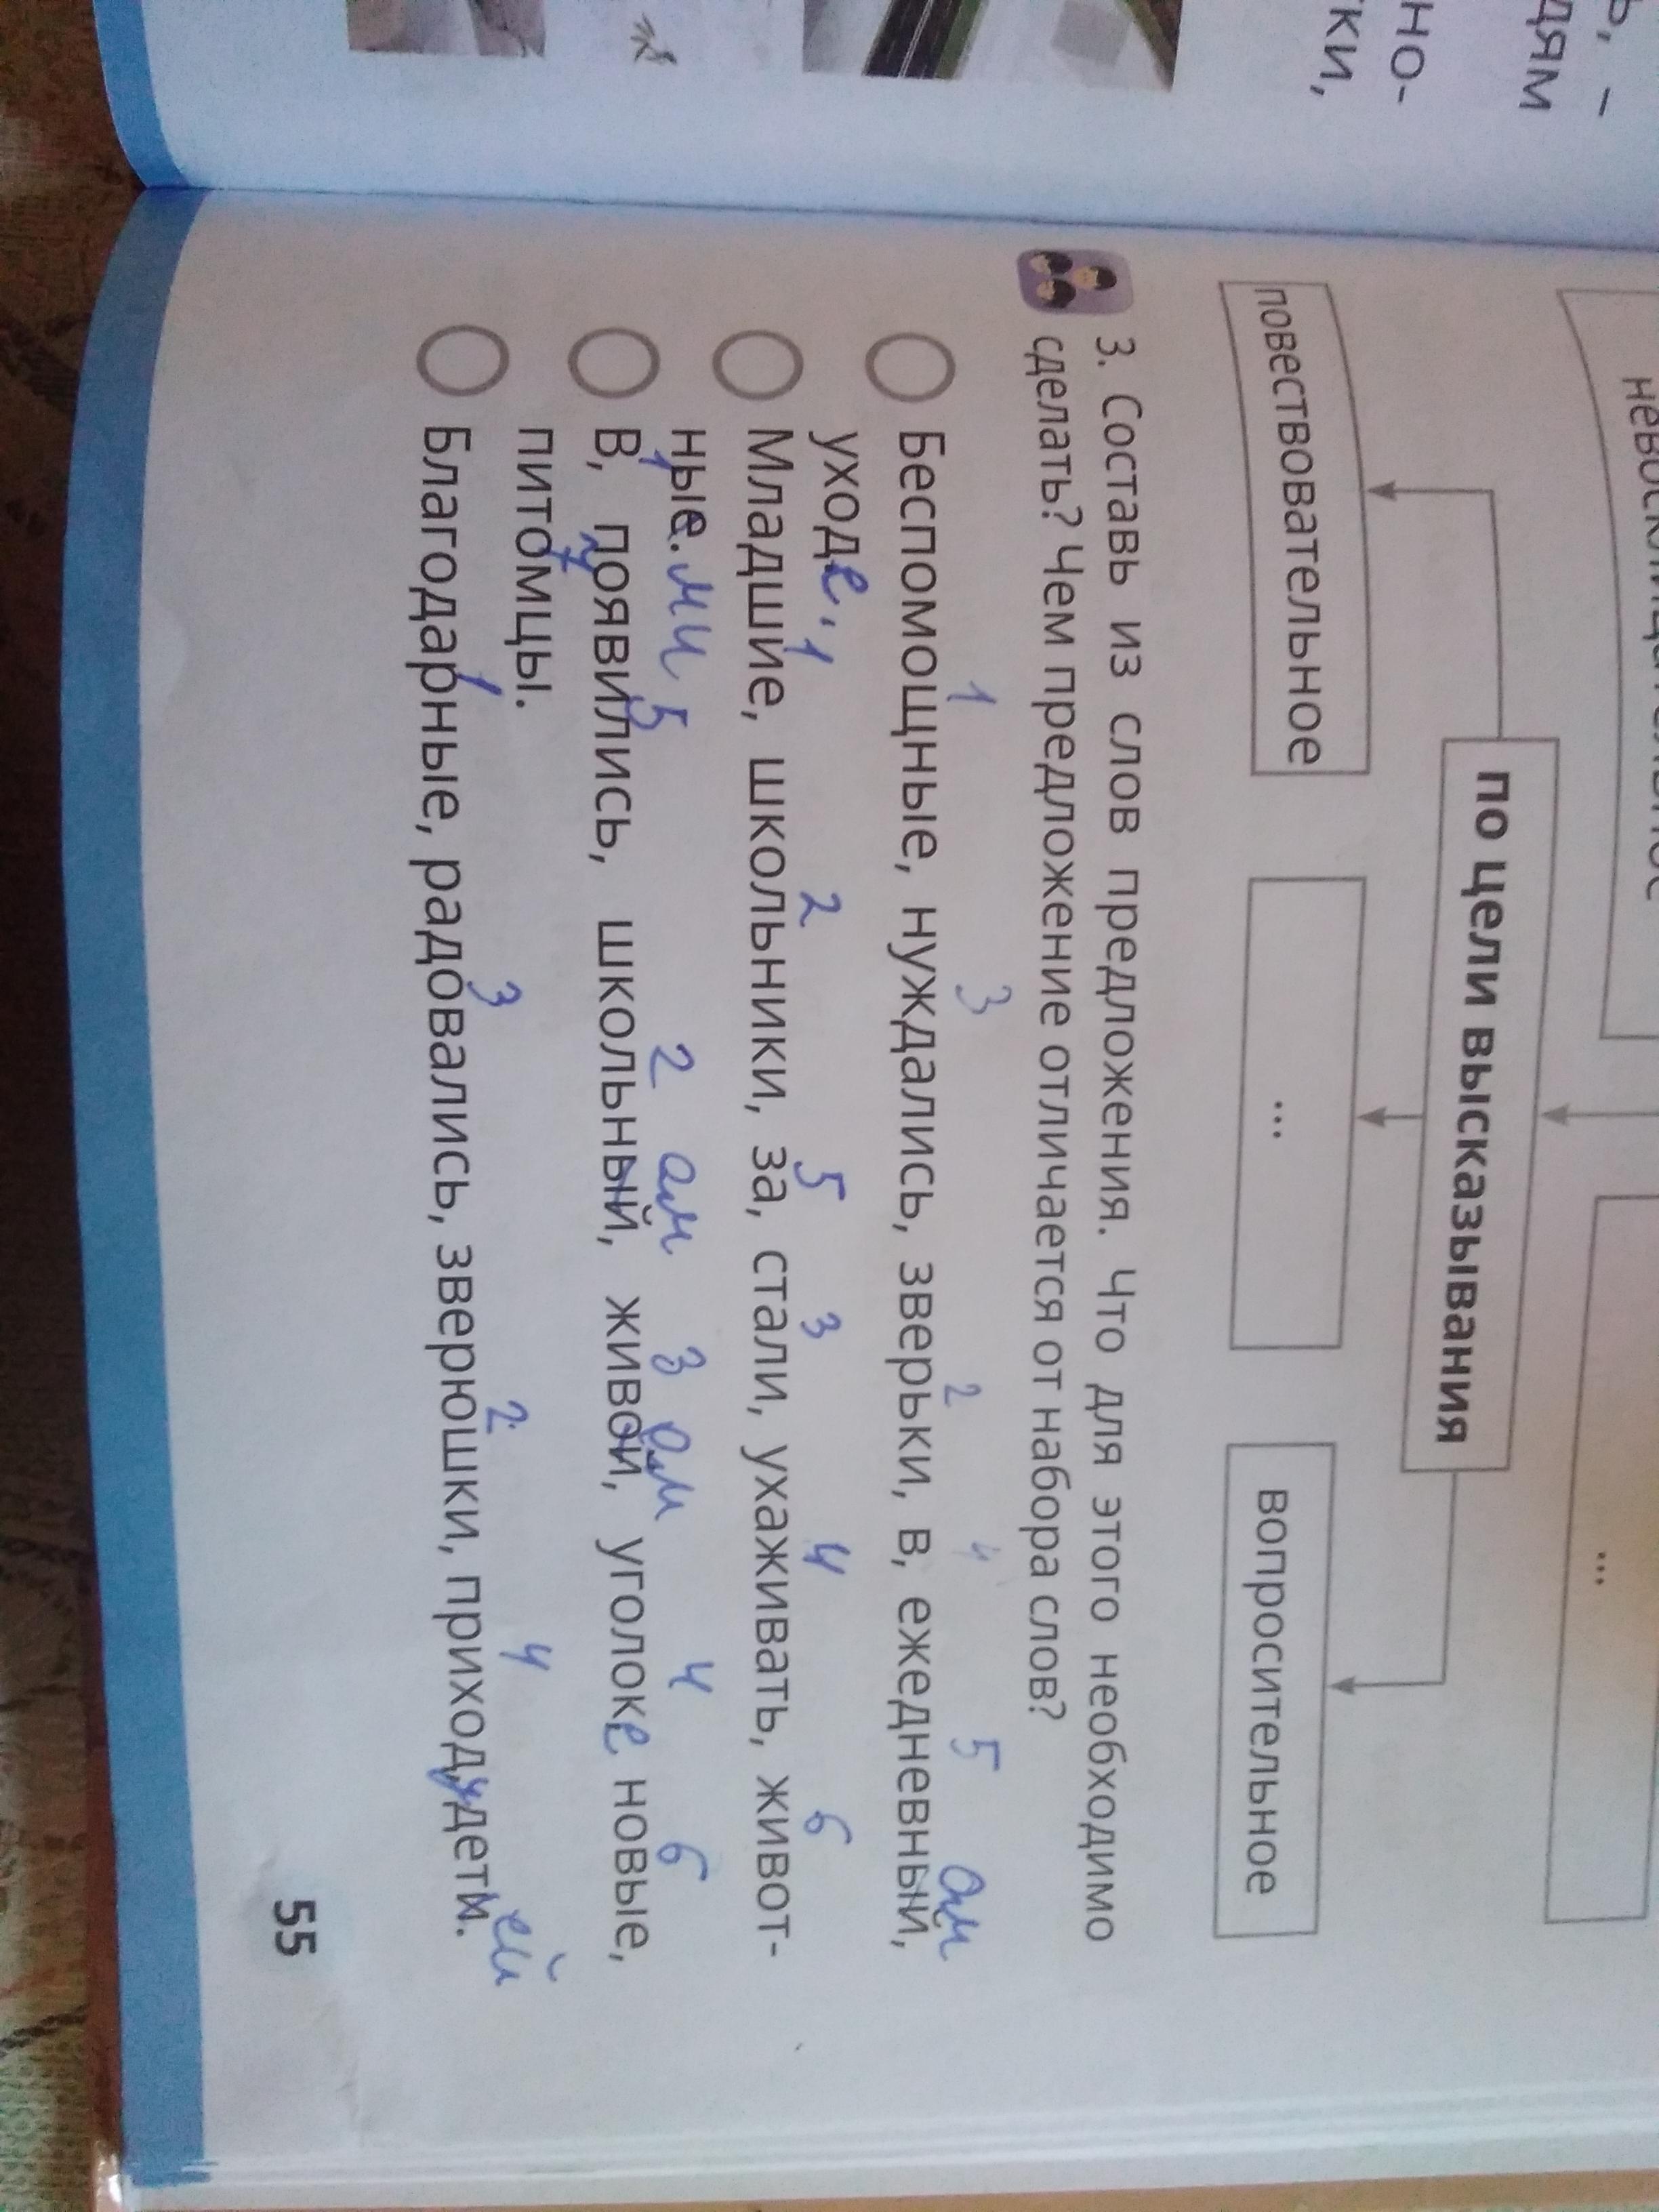 ь, –
дям
но-
ки,
...
по цели высказывания
повествовательное
...
вопросительное
3. Составь из слов предложения. Что для этого необходимо
сделать? Чем предложение отличается от набора слов?
1 3 2 4 5 ом
Беспомощные, нуждались, зверьки, в, ежедневный,
уходе.
1 2 5 3 4 6
Младшие, школьники, за, стали, ухаживать, живот-
ные. ми
1 5 2 ом 3 ом 4 6
В, появились, школьный, живой, уголоке новые,
7
питомцы.
1 3 2 4 ей
Благодарные, радовались, зверюшки, приход,у дети.
55